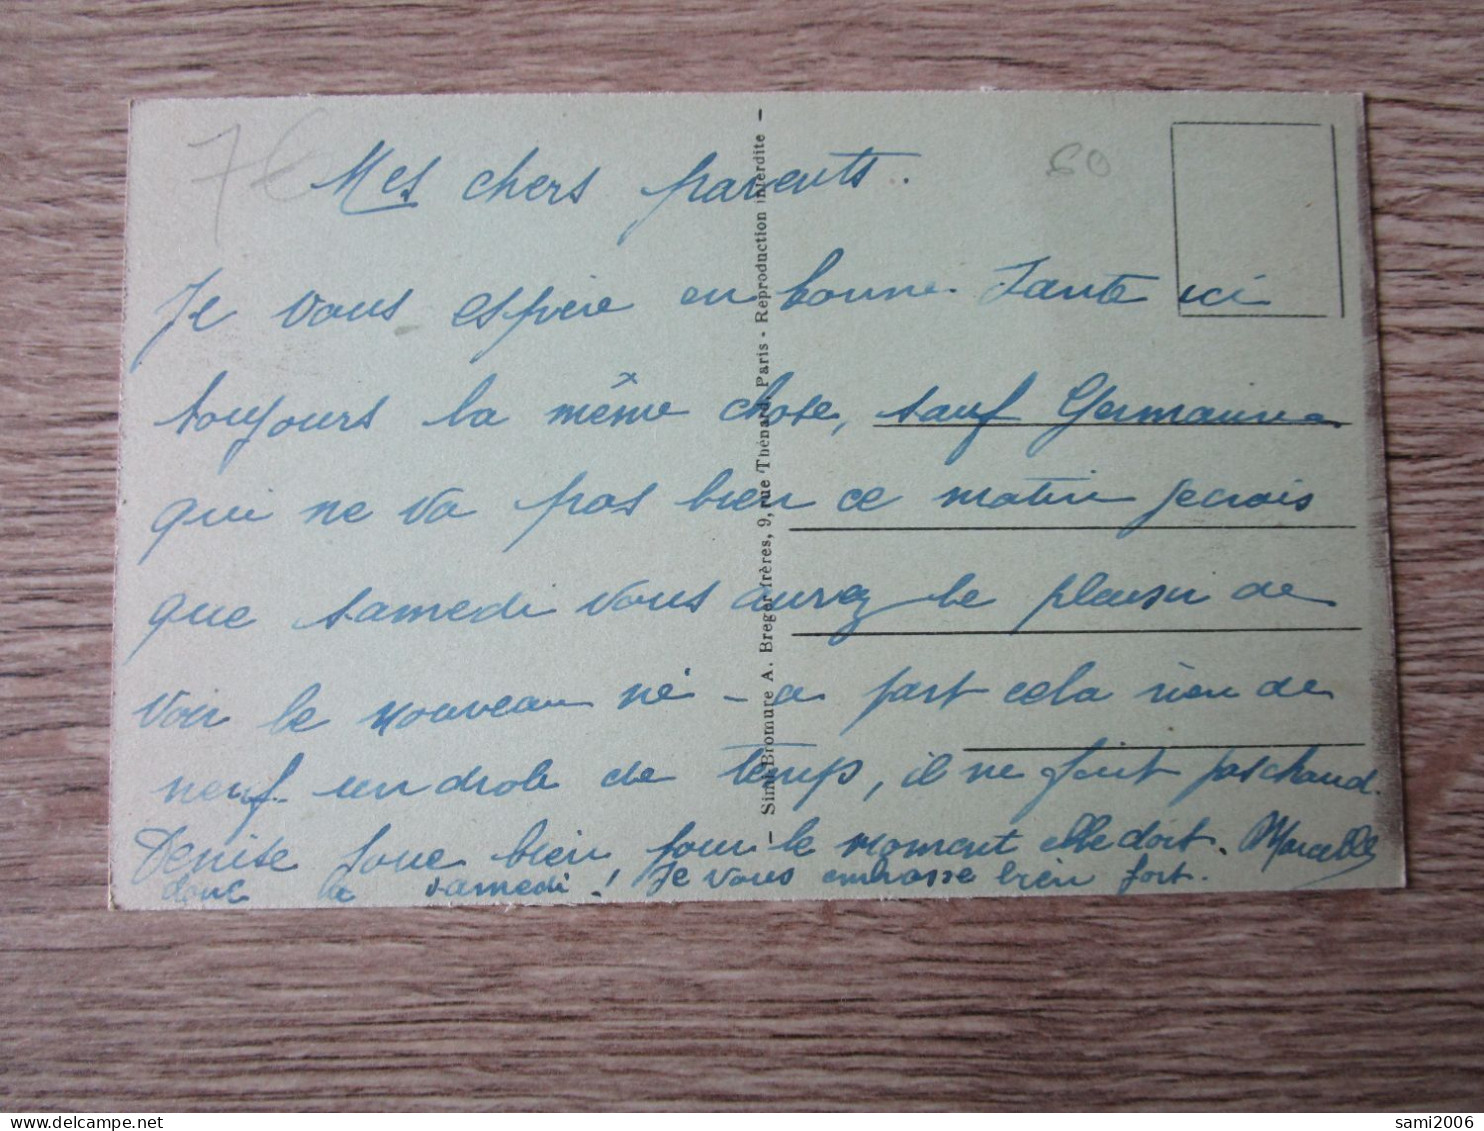 7€
60
Mes chers parents.
Je vous espère en bonne Sante ici
toujours la même chose, sauf Germaine
qui ne va pas bien ce matin je crois
que samedi vous aurez le plaisir de
voir le nouveau né - a part cela rien de
neuf un drole de temps, il ne fait pas chaud.
Denise joue bien pour le moment elle dort. Marcelle
donc a samedi! Je vous embrasse bien fort.
- Simi-Bromure A. Breger frères, 9, rue Thénard, Paris - Reproduction interdite -
sami2006